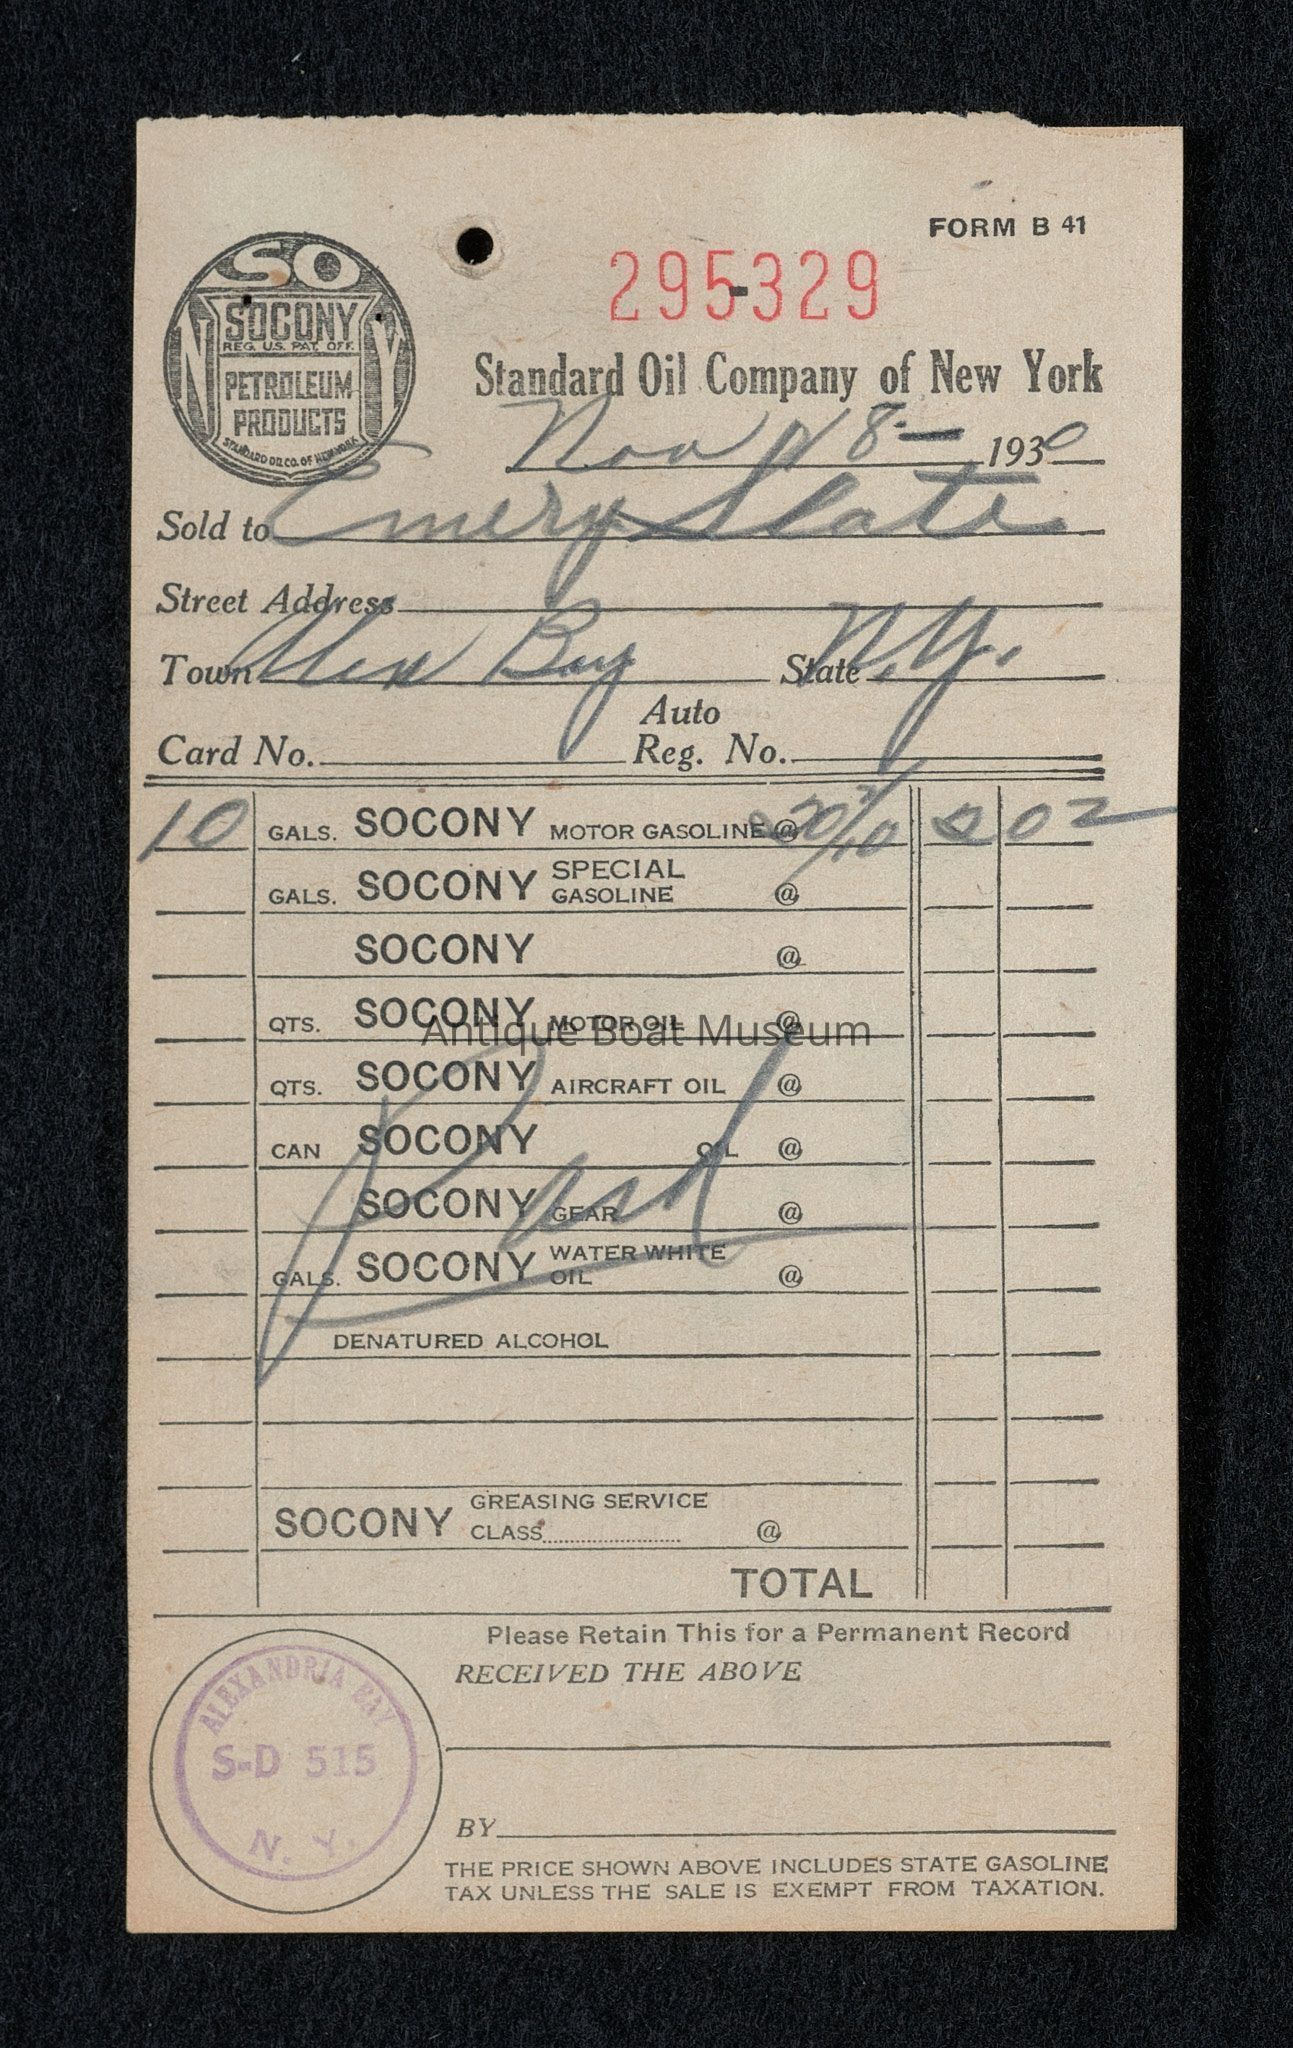 FORM B 41
295-329
SO
N Y
SOCONY
REG. U.S. PAT. OFF.
PETROLEUM
PRODUCTS
STANDARD OIL CO. OF NEW YORK
Standard Oil Company of New York
Nov 8- 1930
Sold to Emery Slate
Street Address
Town Alex Bay State N.Y.
Auto
Card No. Reg. No.
10 GALS. SOCONY MOTOR GASOLINE @ 20 2/10 2 02
GALS. SOCONY SPECIAL GASOLINE @
SOCONY @
QTS. SOCONY MOTOR OIL @
Antique Boat Museum
QTS. SOCONY AIRCRAFT OIL @
CAN SOCONY OIL @
SOCONY GEAR @
GALS. SOCONY WATER WHITE OIL @
DENATURED ALCOHOL
SOCONY GREASING SERVICE
CLASS @
TOTAL
Please Retain This for a Permanent Record
RECEIVED THE ABOVE
ALEXANDRIA BAY
S-D 515
N. Y.
BY
THE PRICE SHOWN ABOVE INCLUDES STATE GASOLINE
TAX UNLESS THE SALE IS EXEMPT FROM TAXATION.